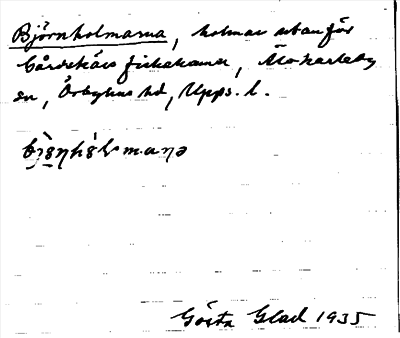 Björnholmarna, holmar utanför
Gårdskärs fiskehamn, Älvkarleby
sn, Örbyhus hd, Upps. l.
Gösta Glad 1935